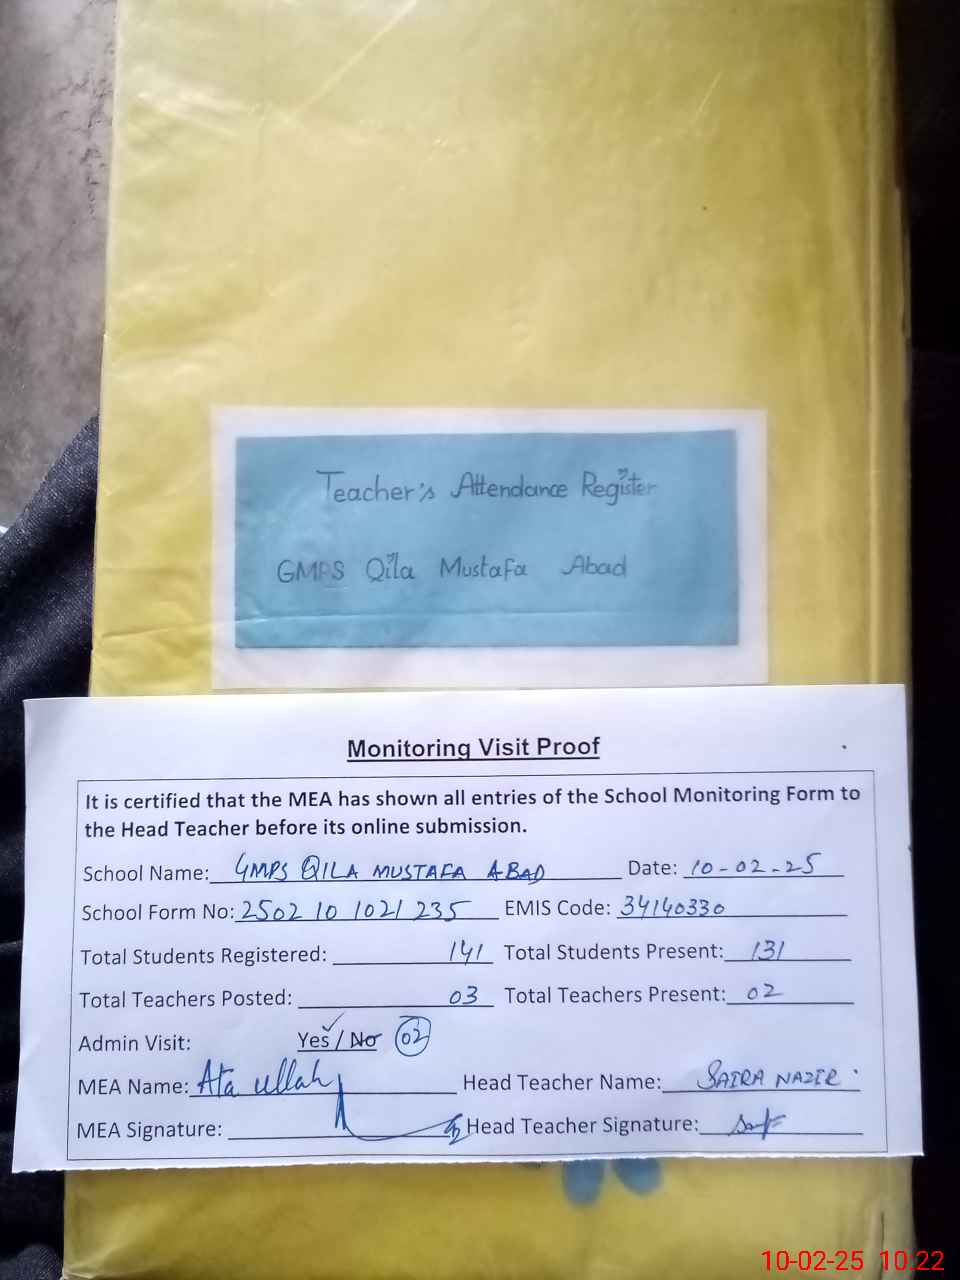 Teacher's Attendance Register
GMPS Qila Mustafa Abad
Monitoring Visit Proof
It is certified that the MEA has shown all entries of the School Monitoring Form to
the Head Teacher before its online submission.
School Name: GMPS QILA MUSTAFA ABAD Date: 10-02-25
School Form No: 2502 10 1021 235 EMIS Code: 34140330
Total Students Registered: 141 Total Students Present: 131
Total Teachers Posted: 03 Total Teachers Present: 02
Admin Visit: Yes / No 02
MEA Name: Ata ullah Head Teacher Name: SAIRA NAZIR
MEA Signature: Head Teacher Signature:
10-02-25 10.22